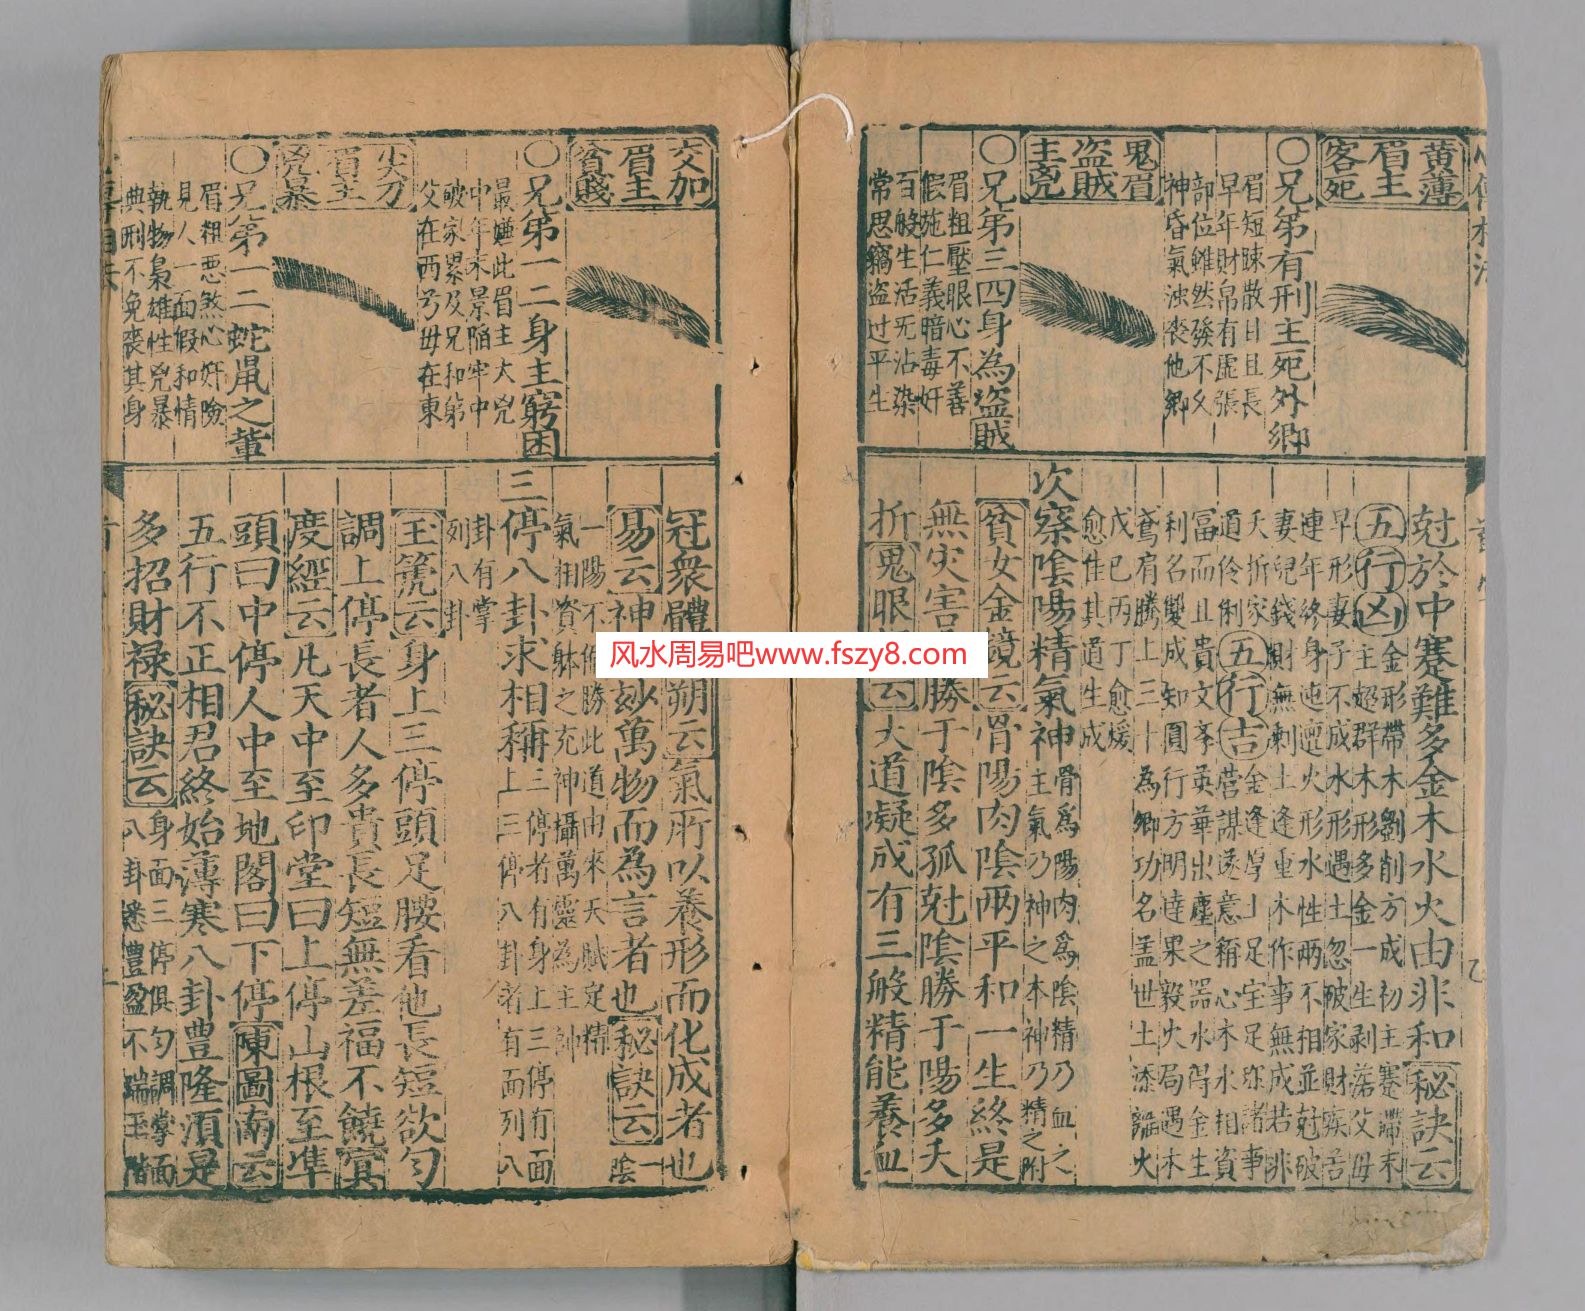 黃薄
眉主
客死
○兄弟有刑主死外鄉
眉短踈散目且長
早年財帛有虛張
部位雖然發不久
神昏氣濁喪他鄉
鬼眉
盗賊
主兇
○兄弟三四身為盗賊
眉粗壓眼心不善
假施仁義暗毒奸
百般生活旡沾染
常思竊盗过平生
尅於中蹇難多金木水火由非和秘訣云
五行凶金形帶木劉削方成初主蹇滯末
主超群木形多金一生剥落父母
早形妻子不成水形遇土忽破家財疾苦
連年終身迍邅火形水性兩不相並尅破
妻兒錢財無剩土逢重木作事無成若非
夭折家
道伶俐五行吉金逢厚土足宝足珎諸事
營謀遂意稱心木水相資
冨而且貴文孝英華出塵之器水得金生
利名雙成知圓行方明達果毅火局遇木
鳶肩騰上三十為卿功名盖世土添離火
戊巳丙丁愈煖
愈佳其道生成
次察陰陽精氣神骨為陽肉為陰精乃血之
主氣乃神之本神乃精之附
貧女金鏡云骨陽肉陰兩平和一生終是
無灾害 勝于陰多孤尅陰勝于陽多夭
折鬼眼 云大道凝成有三般精能養血
交加
眉主
貧賤
○兄第一二身主窮困
最嫌此眉主大兇
中年末景陷牢中
破家累及兄和第
父在西兮毋在東
尖刀
眉主
兇暴
○兄第一二蛇鼠之輩
眉粗恶煞心奸險
見人一面假和情
執物梟雄性兇暴
典刑不免喪其身
冠衆體 朔云氣所以養形而化成者也
易云神 妙萬物而為言者也秘訣云一陰
一陽不 勝此道由來天賦定精
氣相資躰之充神攝萬靈為主帥
三停八卦求相稱三停者有身上三停有面
上三停八卦者有面列八
卦有掌
列八卦
玉筦云身上三停頭足腰看他長短欲匀
調上停長者人多貴長短無差福不饒實
度經云凡天中至印堂曰上停山根至準
頭曰中停人中至地閣曰下停陳圖南云
五行不正相君終始薄寒八卦豊隆湏是
多招財禄秘訣云身面三停俱匀調掌面
八卦悉豊盈不端玉階
风水周易吧www.fszy8.com